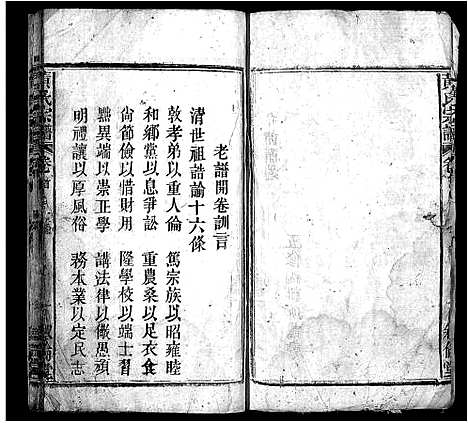 老譜開卷訓言
清世祖誥諭十六條
敦孝弟以重人倫　篤宗族以昭雍睦
和鄉黨以息爭訟　重農桑以足衣食
尚節儉以惜財用　隆學校以端士習
黜異端以崇正學　講法律以儆愚頑
明禮讓以厚風俗　務本業以定民志
氏宗譜